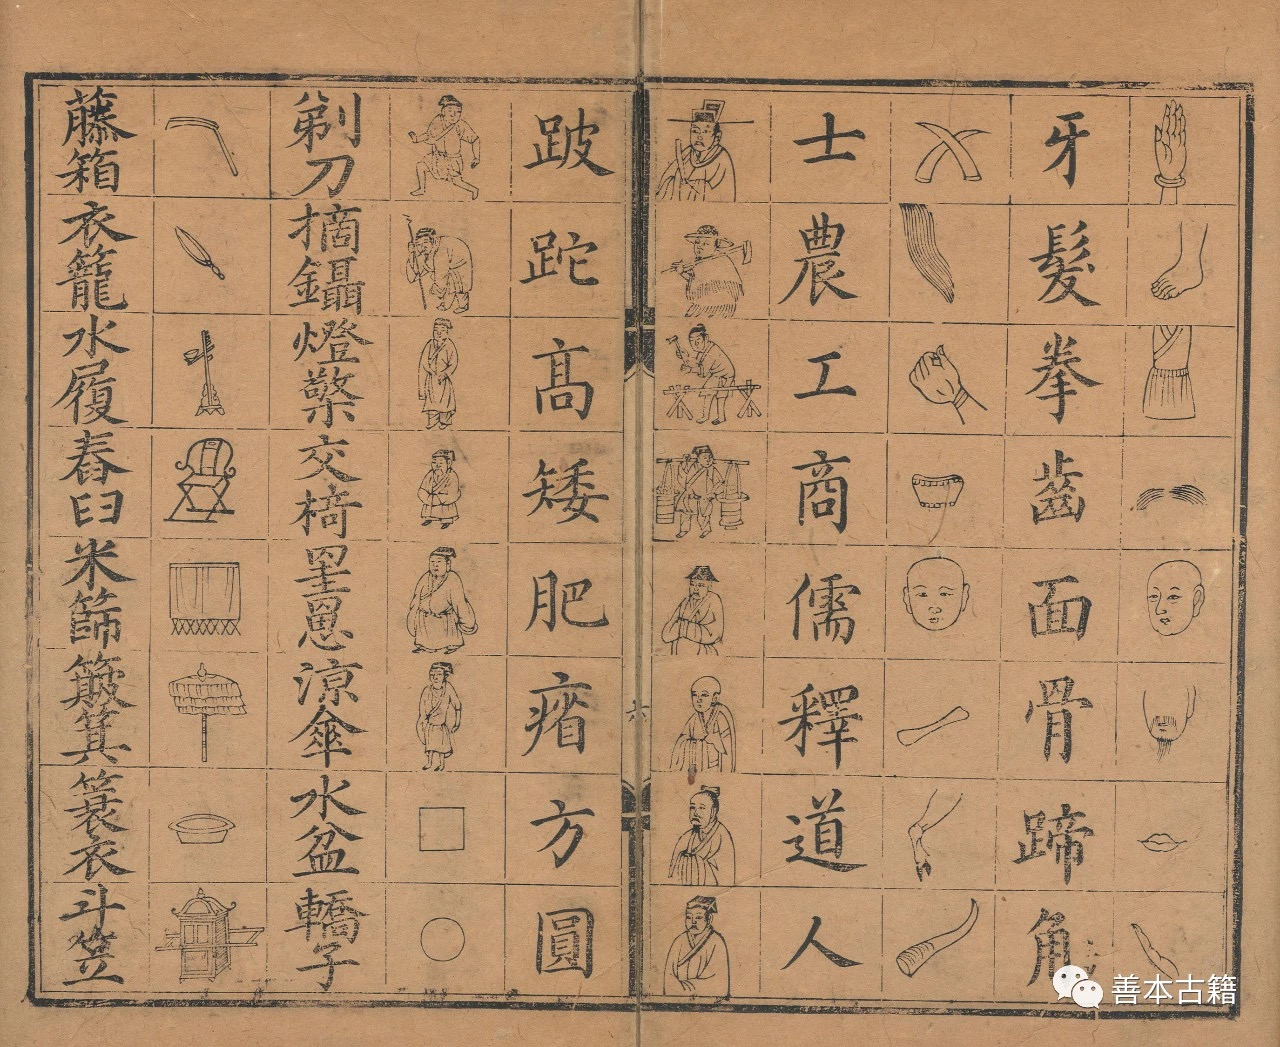 牙髮拳齒面骨蹄角
士農工商儒釋道人
六
跛跎髙矮肥瘠方圓
剃刀摘鑷燈檠交椅罳涼傘水盆轎子
藤箱衣籠水履舂臼米篩簸箕簑衣斗笠
善本古籍